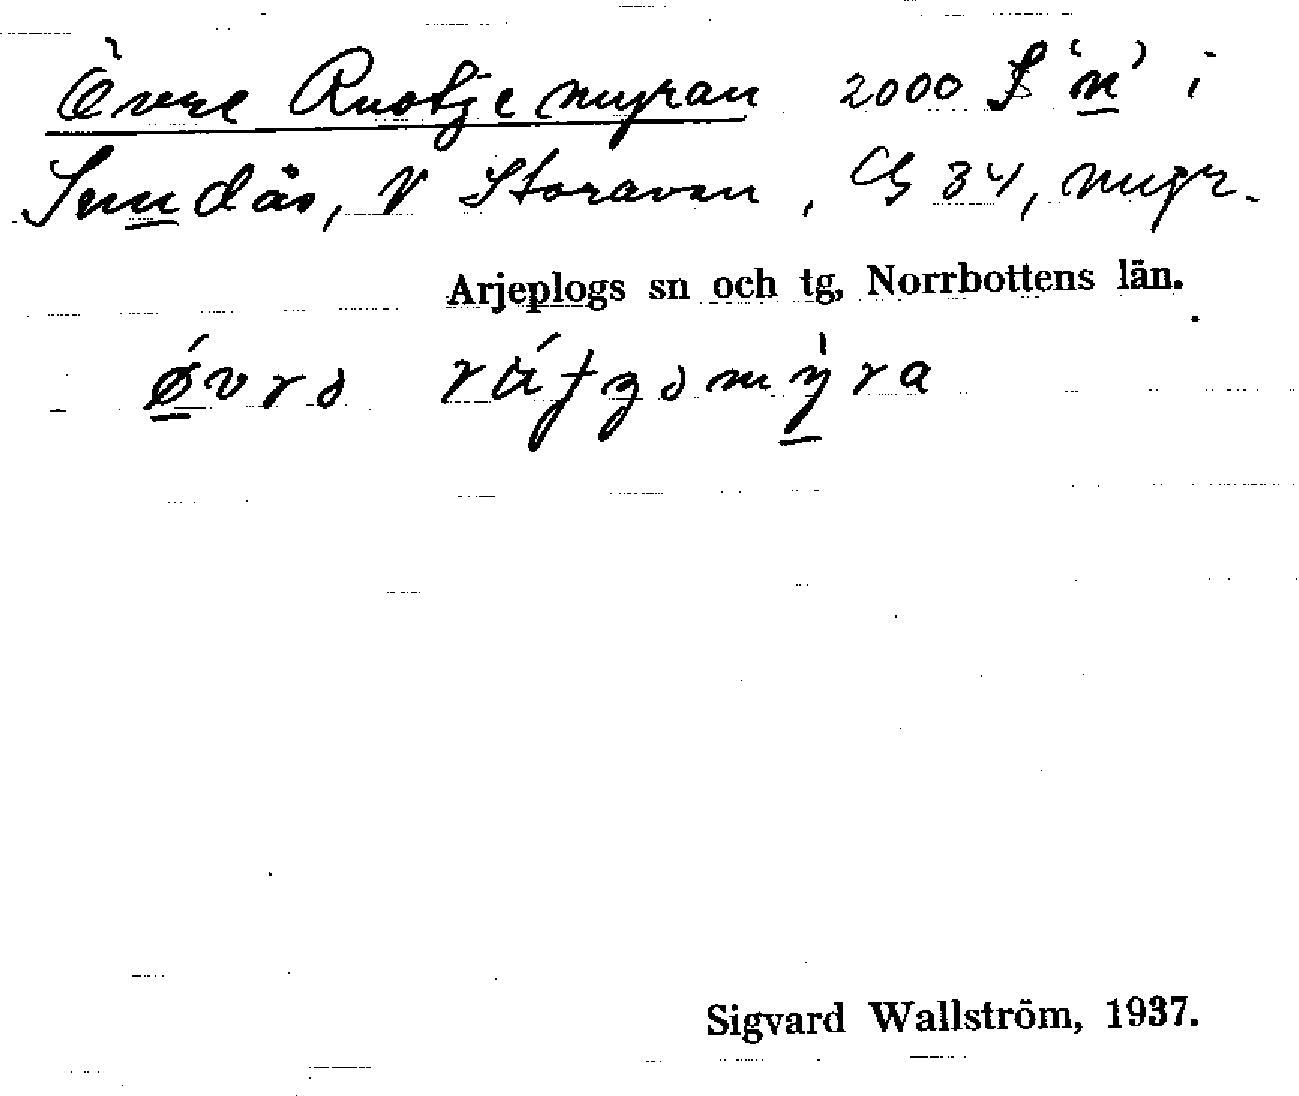 Övre Ruotjemyran 2000 S 'n' i
Sundås, V Storavan, Cb 34, myr.
Arjeplogs sn och tg, Norrbottens län.
Sigvard Wallström, 1937.